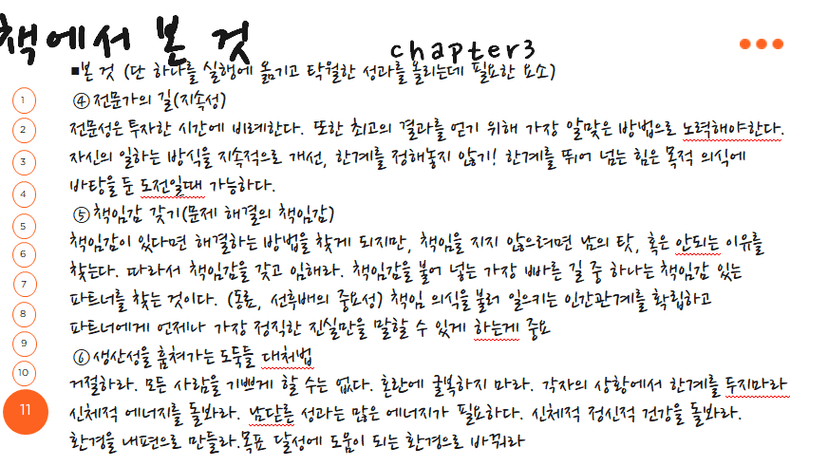 책에서 본 것
chapter3
▪본 것 (단 하나를 실행에 옮기고 탁월한 성과를 올리는데 필요한 요소)
④전문가의 길(지속성)
전문성은 투자한 시간에 비례한다. 또한 최고의 결과를 얻기 위해 가장 알맞은 방법으로 노력해야한다.
자신의 일하는 방식을 지속적으로 개선, 한계를 정해놓지 않기! 한계를 뛰어 넘는 힘은 목적 의식에
바탕을 둔 도전일때 가능하다.
⑤책임감 갖기(문제 해결의 책임감)
책임감이 있다면 해결하는 방법을 찾게 되지만, 책임을 지지 않으려면 남의 탓, 혹은 안되는 이유를
찾는다. 따라서 책임감을 갖고 임해라. 책임감을 불어 넣는 가장 빠른 길 중 하나는 책임감 있는
파트너를 찾는 것이다. (동료, 선후배의 중요성) 책임 의식을 불러 일으키는 인간관계를 확립하고
파트너에게 언제나 가장 정직한 진실만을 말할 수 있게 하는게 중요
⑥생산성을 훔쳐가는 도둑들 대처법
거절하라. 모든 사람을 기쁘게 할 수는 없다. 혼란에 굴복하지 마라. 각자의 상황에서 한계를 두지마라
신체적 에너지를 돌봐라. 남다른 성과는 많은 에너지가 필요하다. 신체적 정신적 건강을 돌봐라.
환경을 내편으로 만들라.목표 달성에 도움이 되는 환경으로 바꿔라
1
2
3
4
5
6
7
8
9
10
11